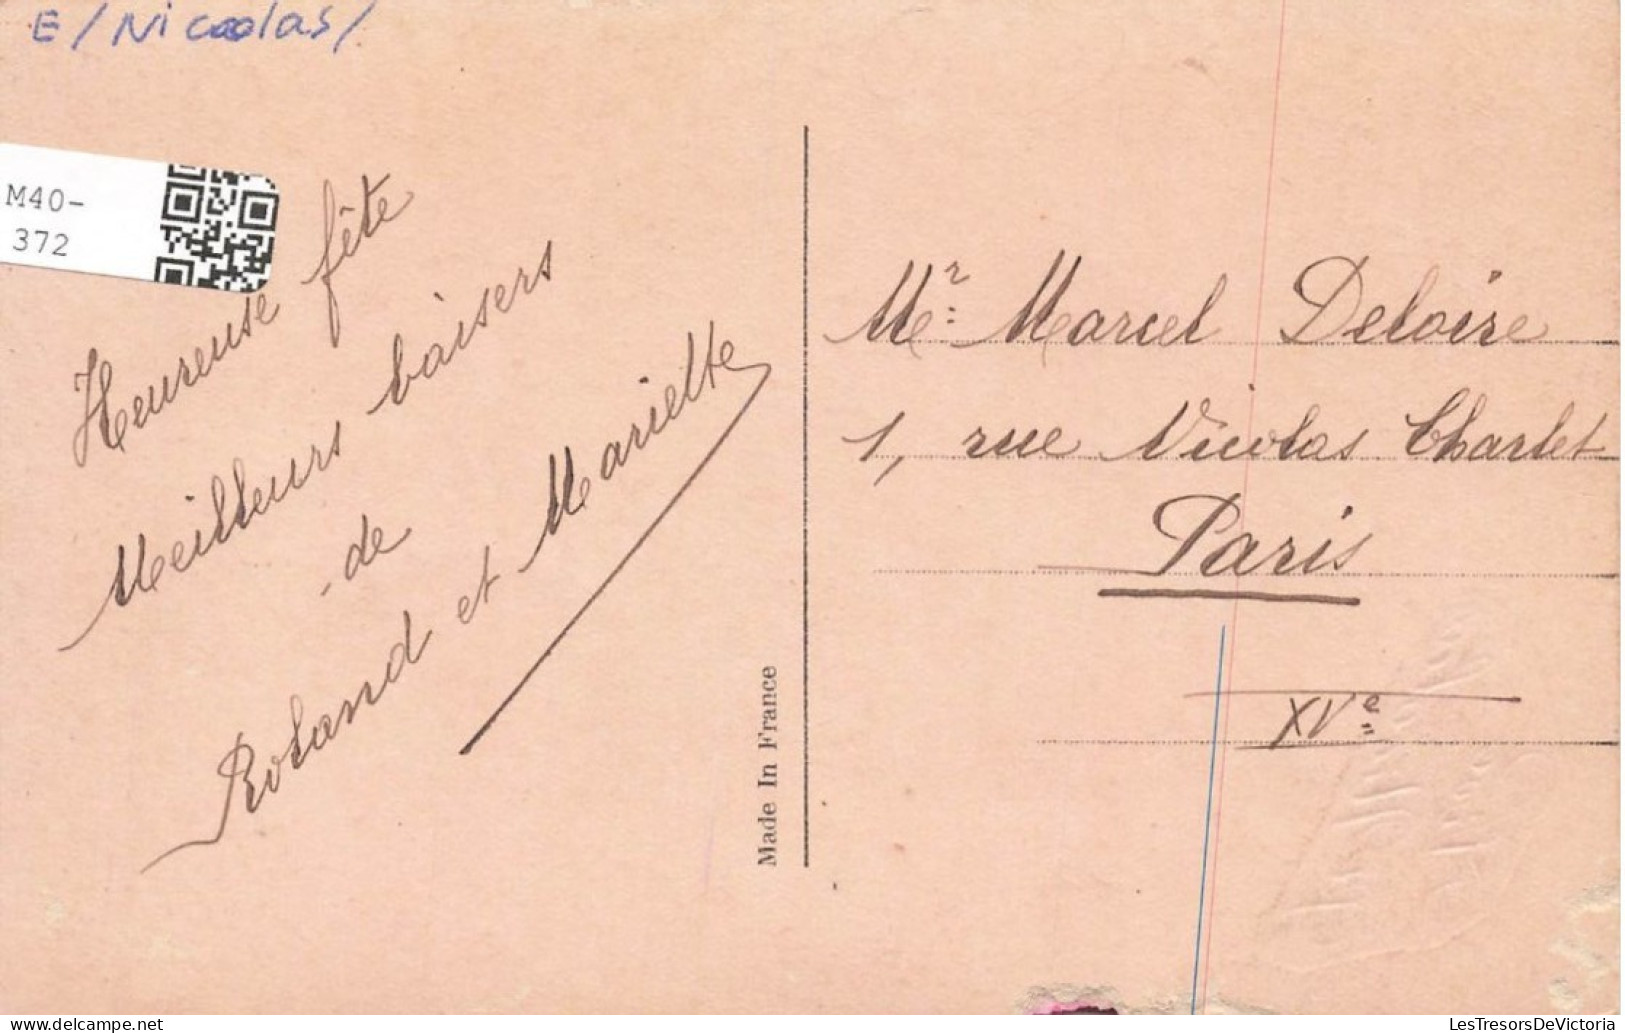 E/Nicolas/
M40-
372
Heureuse fête
Meilleurs baisers
de
Roland et Mariette
Made In France
Mr: Marcel Deloire
1, rue Nicolas Charlet
Paris
XVe
LesTresorsDeVictoria